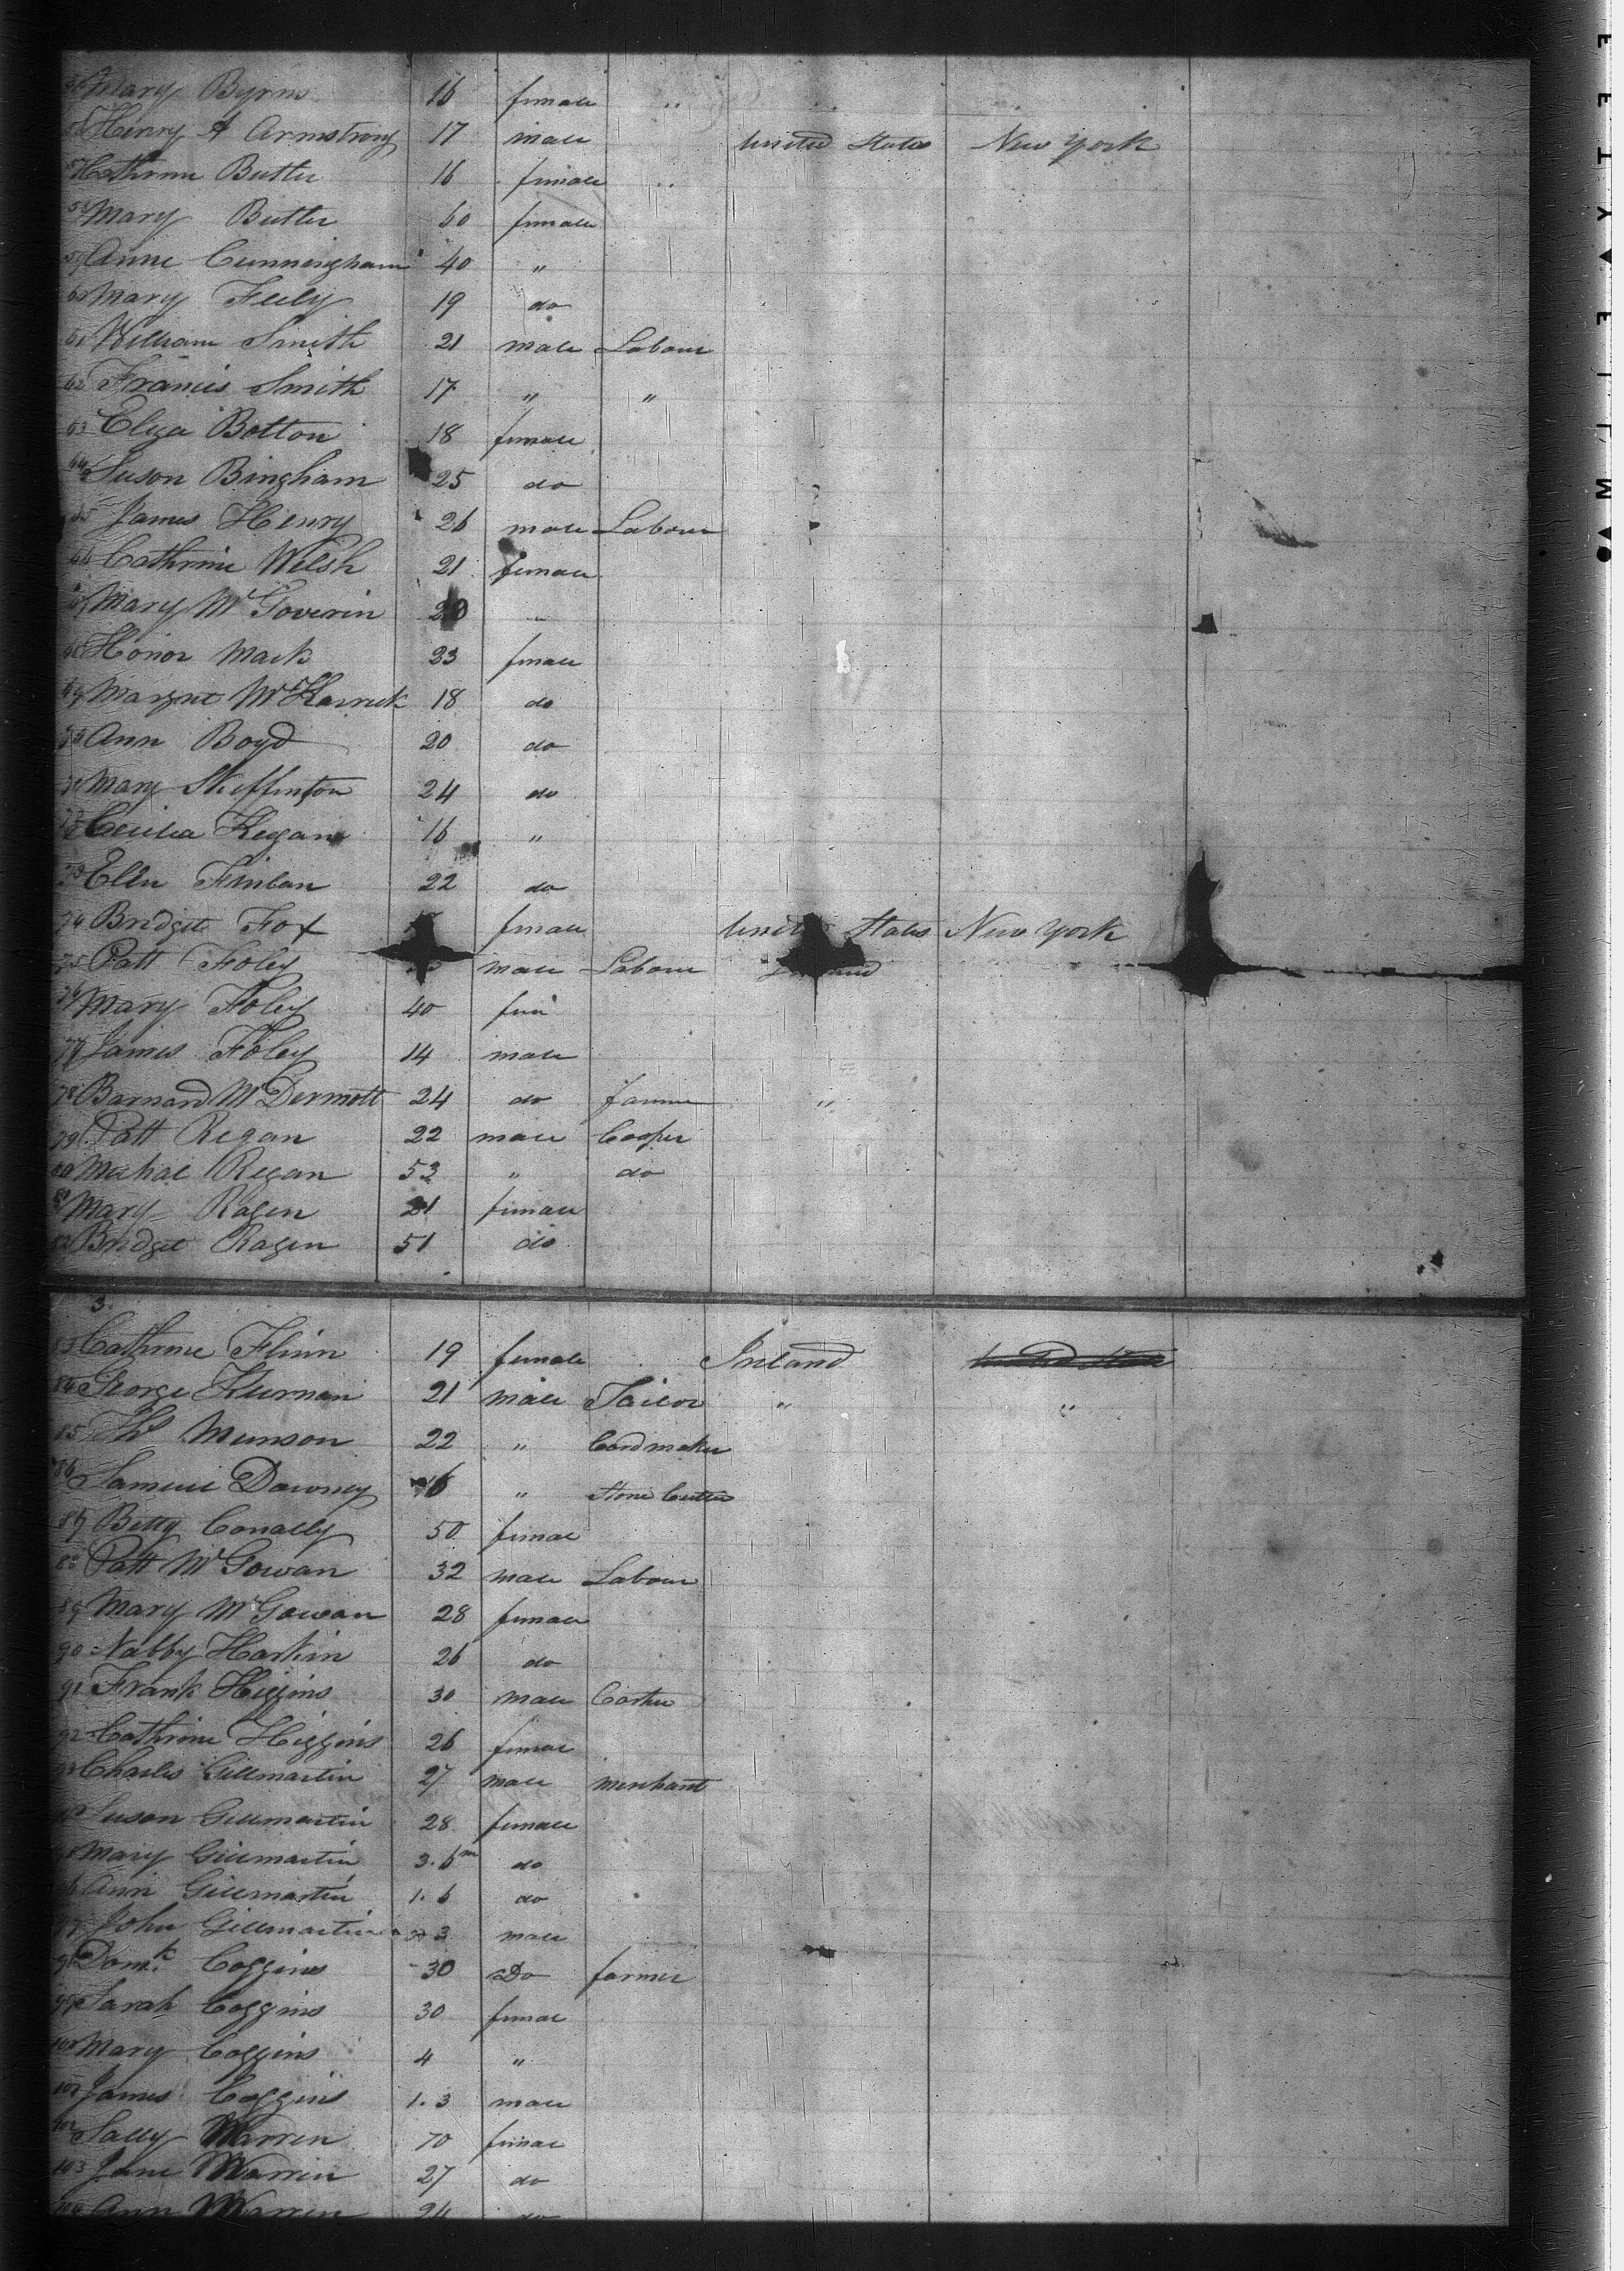 Mary Byrns 16 female "
56 Henry A Armstrong 17 male United States New York
57 Cathrine Butler 16 female "
58 Mary Butler 60 female
59 Anne Cunningham 40 "
60 Mary Feely 19 do
61 William Smith 21 male Labour
62 Francis Smith 17 " "
63 Eliza Botton 18 female
64 Suson Bingham 25 do
65 James Henry 26 male Labour
66 Cathrine Welsh 21 female
67 Mary McGoverin 20 "
68 Honor Mack 23 female
69 Margret 18 do
70 Ann Boyd 20 do
71 Mary Skeffinton 24 do
72 Cecilia Kegan 16 "
73 Ellen Finlan 22 do
74 Bridget Fox female United States New York
75 Patt Foley male Labour
76 Mary Foley 40 fem
77 James Foley 14 male
78 Barnard McDermott 24 do farmer "
79 Patt Regan 22 male Cooper
80 Michael Regan 53 " do
81 Mary Ragen 21 female
82 Bridget Ragen 51 do
3.
83 Cathrine Flinn 19 female Ireland
84 George Kurnan 21 male Tailor " "
85 Thos Munson 22 " Cardmaker
86 Samuel Downey 16 " Stone Cutter
87 Betty Conally 50 femal
88 Patt McGowan 32 male Labour
89 Mary McGowan 28 female
90 Nabby Harkin 26 do
91 Frank Higgins 30 male
92 Cathrine Higgins 26 femal
93 Charles Gillmartin 27 male merchant
Suson Gillmartin 28 female
Mary Gillmartin 3.6m do
Ann Gillmartin 1.6 do
John Gillmartin 3 male
98 Domk. Coggins 30 Do farmer
99 Sarah Coggins 30 femal
100 Mary Coggins 4 "
101 James Coggins 1.3 male
102 Sally Warren 70 femal
103 Jane Warrin 27 do
104 Ann Warren 24 do